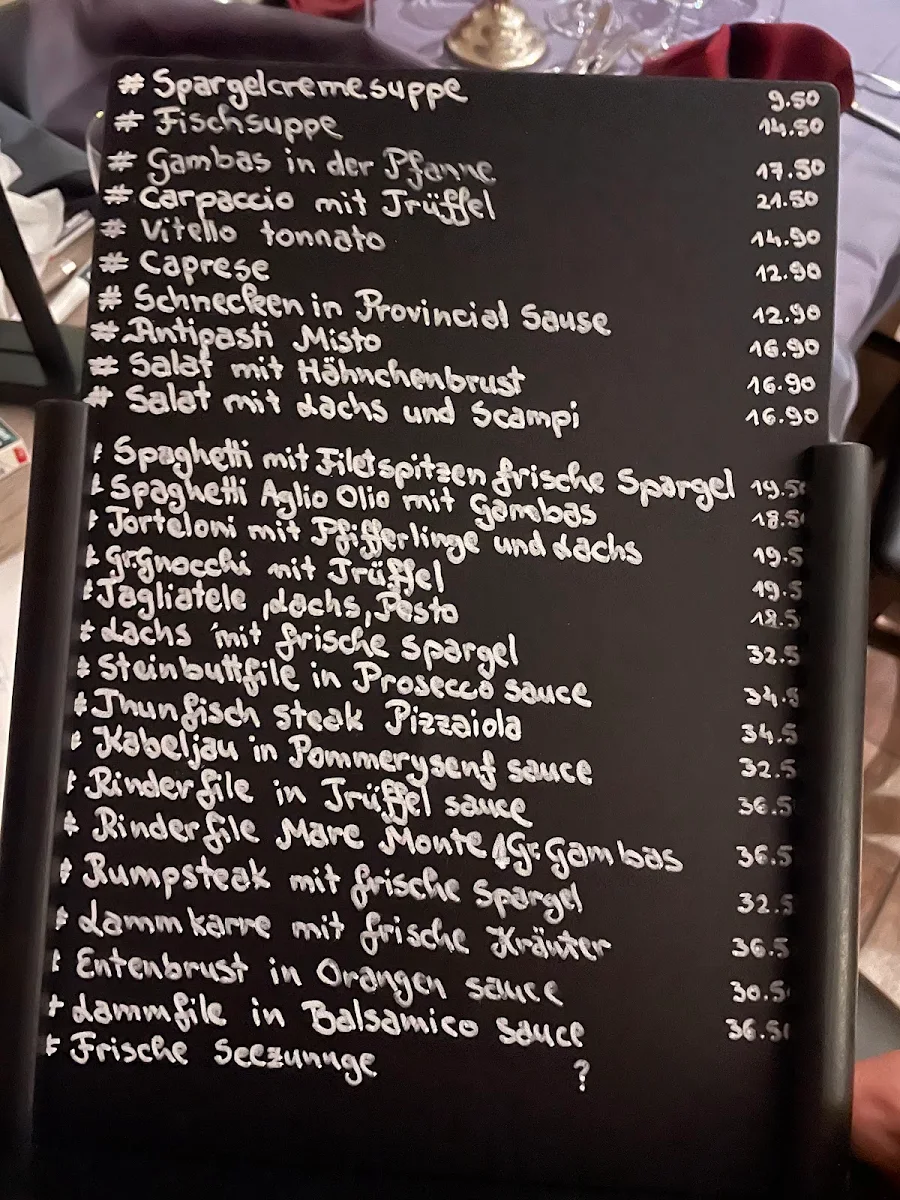 # Spargelcremesuppe 9.50
# Fischsuppe 14.50
# Gambas in der Pfanne 17.50
# Carpaccio mit Trüffel 21.50
# Vitello tonnato 14.90
# Caprese 12.90
# Schnecken in Provincial Sause 12.90
# Antipasti Misto 16.90
# Salat mit Hähnchenbrust 16.90
# Salat mit Lachs und Scampi 16.90
# Spaghetti mit Filetspitzen frische Spargel 19.50
# Spaghetti Aglio Olio mit Gambas 18.50
# Torteloni mit Pfifferlinge und Lachs 19.5
# Gr.gnocchi mit Trüffel 19.5
# Tagliatele, Lachs, Pesto 18.5
# Lachs mit frische Spargel 32.5
# Steinbuttfile in Prosecco sauce 34.5
# Thunfisch Steak Pizzaiola 34.5
# Kabeljau in Pommerysenf sauce 32.5
# Rinderfile in Trüffel sauce 36.5
# Rinderfile Mare Monte 1Gr. Gambas 36.5
# Rumpsteak mit frische Spargel 32.5
# Lammkarre mit frische Kräuter 36.5
# Entenbrust in Orangen sauce 30.5
# Lammfile in Balsamico sauce 36.50
# Frische Seezunnge ?